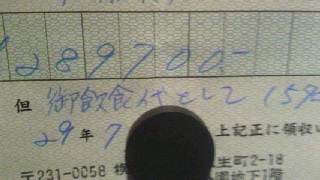 289700-
但 御飲食代として(15名
29年7 上記正に領収い
〒231-0058 横 生町2-18
園地下1階